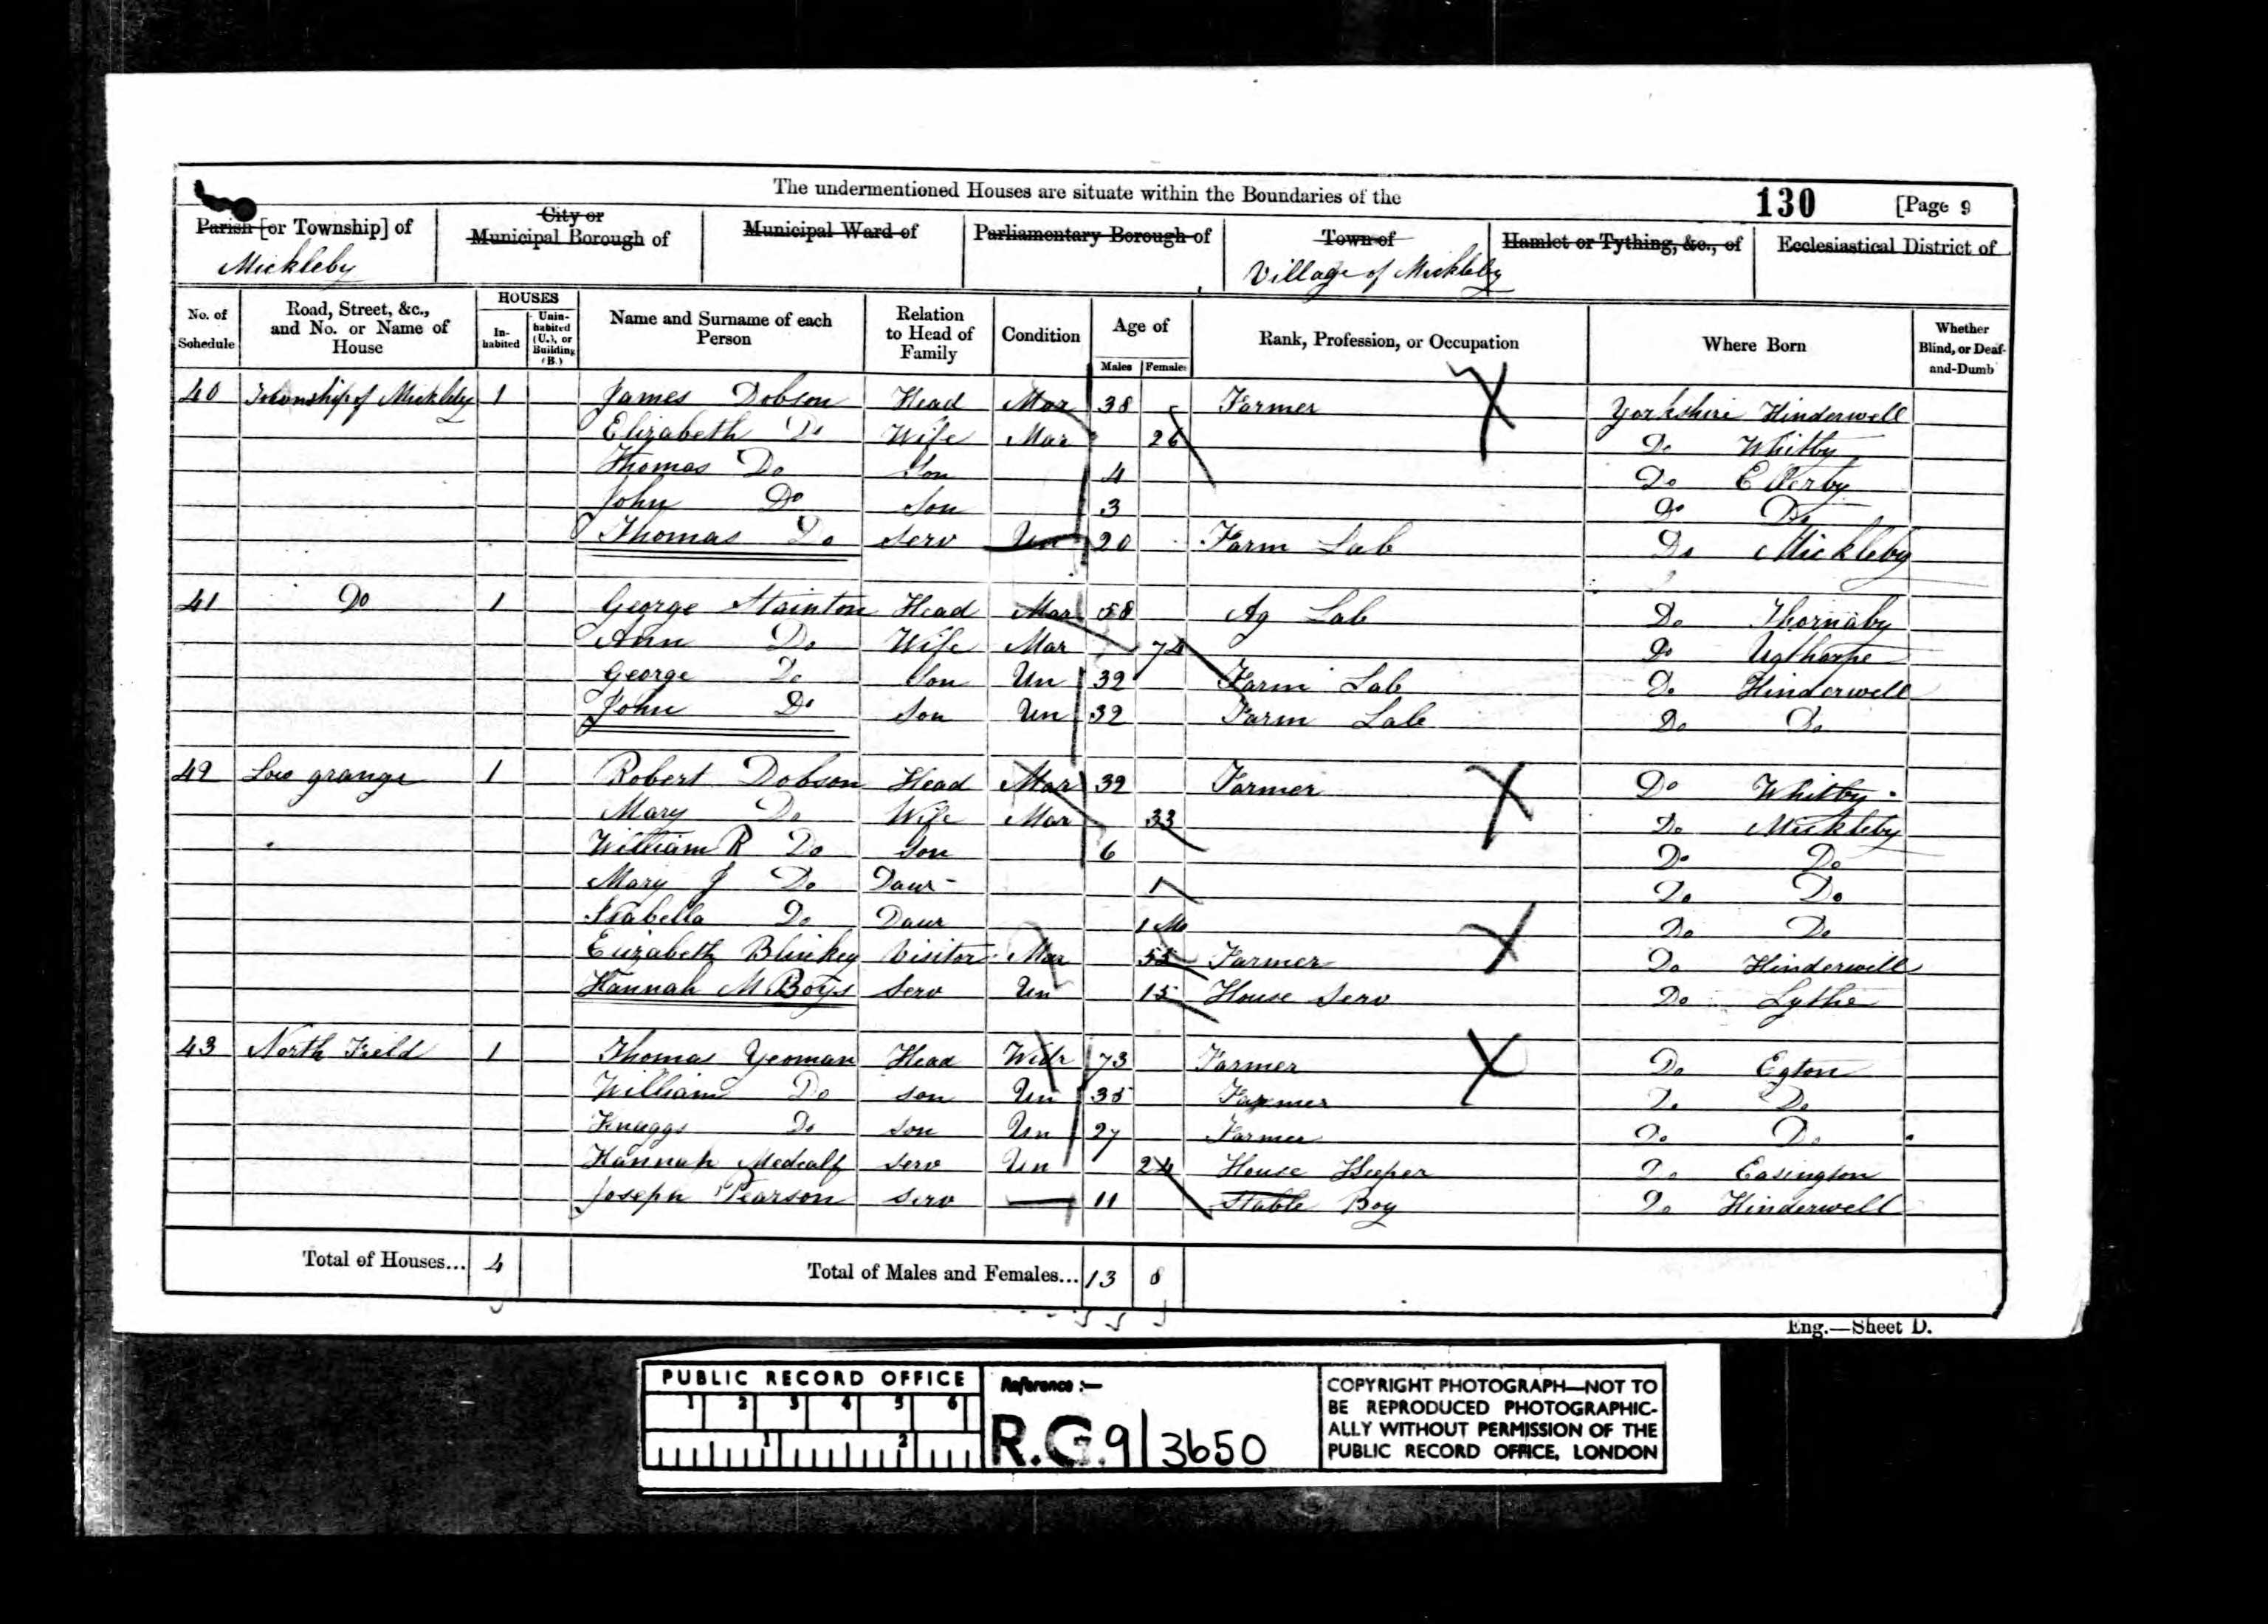 The undermentioned Houses are situate within the Boundaries of the 130 [Page 9
Parish [or Township] of City or Municipal Borough of Municipal Ward of Parliamentary Borough of Town of Hamlet or Tything, &c., of Ecclesiastical District of
Mickleby Village of Mickleby
No. of Schedule Road, Street, &c., and No. or Name of House HOUSES In-habited Unin-habited (U.), or Building (B.) Name and Surname of each Person Relation to Head of Family Condition Age of Males Females Rank, Profession, or Occupation Where Born Whether Blind, or Deaf-and-Dumb
40 Township of Mickleby 1 James Dobson Head Mar 38 Farmer Yorkshire Hinderwell
Elizabeth Do Wife Mar 26 Do Whitby
Thomas Do Son 4 Do Ellerby
John Do Son 3 Do Do
Thomas Do Serv Un 20 Farm Lab Do Mickleby
41 Do 1 George Stainton Head Mar 58 Ag Lab Do Thornaby
Ann Do Wife Mar 74 Do Ugthorpe
George Do Son Un 32 Farm Lab Do Hinderwell
John Do Son Un 32 Farm Lab Do Do
42 Low grange 1 Robert Dobson Head Mar 32 Farmer Do Whitby
Mary Do Wife Mar 33 Do Mickleby
William R Do Son 6 Do Do
Mary J Do Daur 1 Do Do
Isabella Do Daur 1 Mo Do Do
Elizabeth Visitor Mar 55 Farmer Do Hinderwell
Hannah M Boys Serv Un 15 House Serv Do Lythe
43 North Field 1 Thomas Yeoman Head Widr 73 Farmer Do Egton
William Do Son Un 35 Farmer Do Do
Knaggs Do Son Un 27 Farmer Do Do
Hannah Medcalf Serv Un 24 House Keeper Do Easington
Joseph Pearson Serv 11 Stable Boy Do Hinderwell
Total of Houses... 4 Total of Males and Females... 13 8
Eng.—Sheet D.
PUBLIC RECORD OFFICE
1 2 3 4 5 6
1 2
Reference :—
R.G. 9/3650
COPYRIGHT PHOTOGRAPH—NOT TO
BE REPRODUCED PHOTOGRAPHIC-
ALLY WITHOUT PERMISSION OF THE
PUBLIC RECORD OFFICE, LONDON